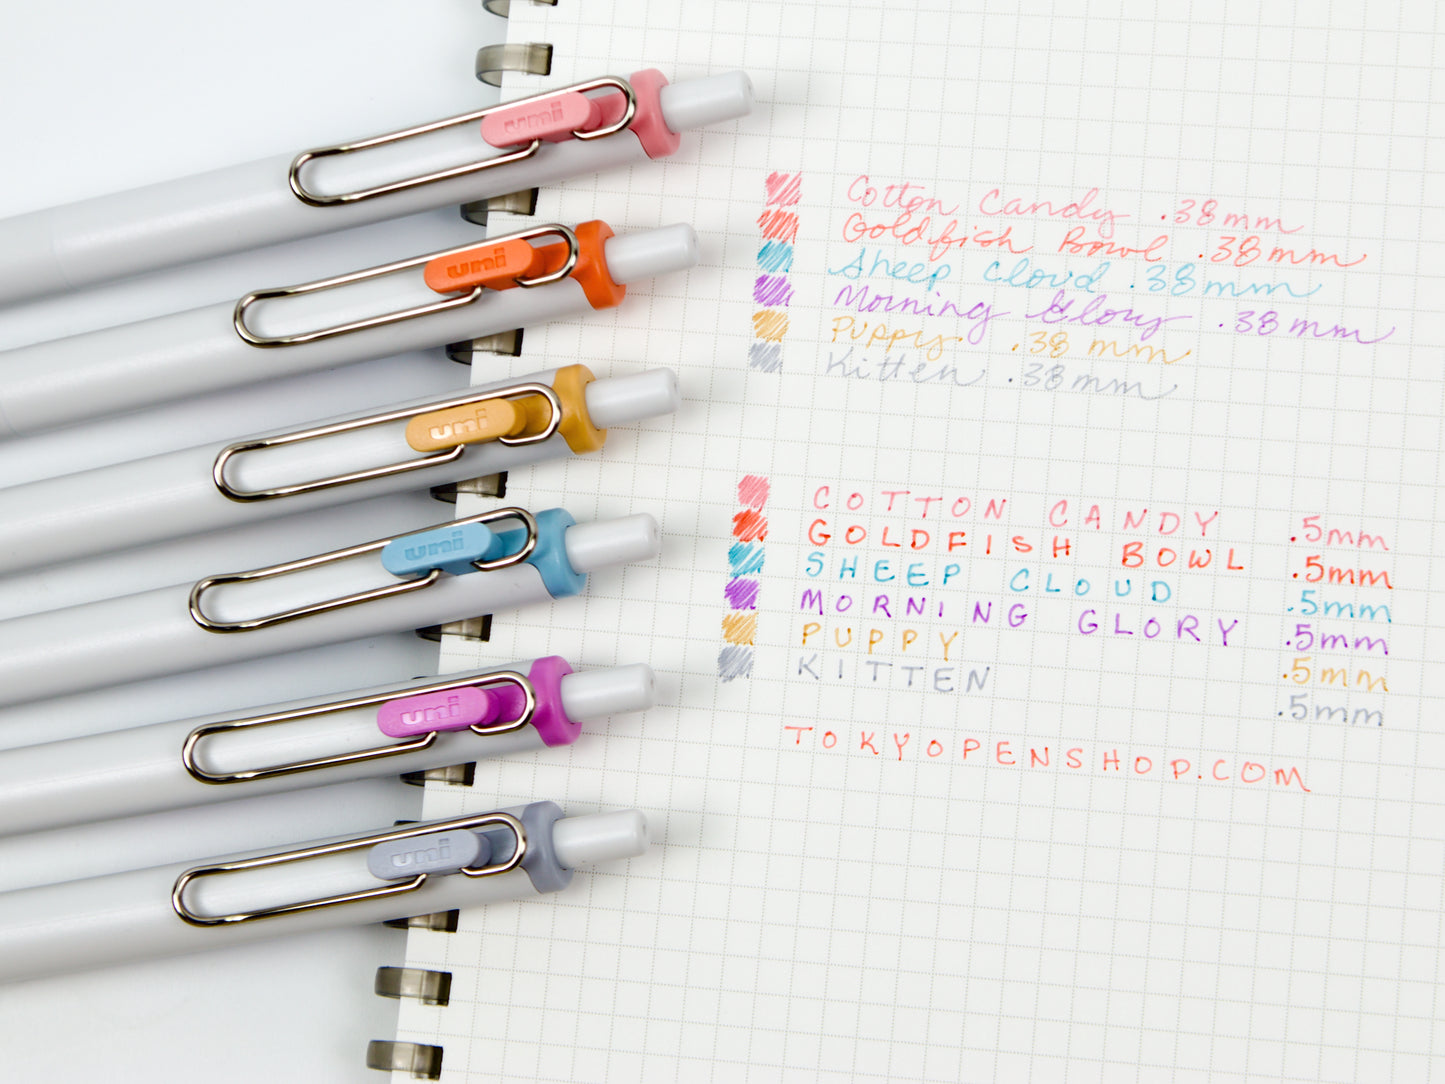 uni
uni
uni
uni
uni
uni
Cotton Candy .38mm
Goldfish Bowl .38mm
Sheep Cloud .38mm
Morning Glory .38mm
Puppy .38mm
Kitten .38mm
COTTON CANDY .5mm
GOLDFISH BOWL .5mm
SHEEP CLOUD .5mm
MORNING GLORY .5mm
PUPPY .5mm
KITTEN .5mm
TOKYOPENSHOP.COM